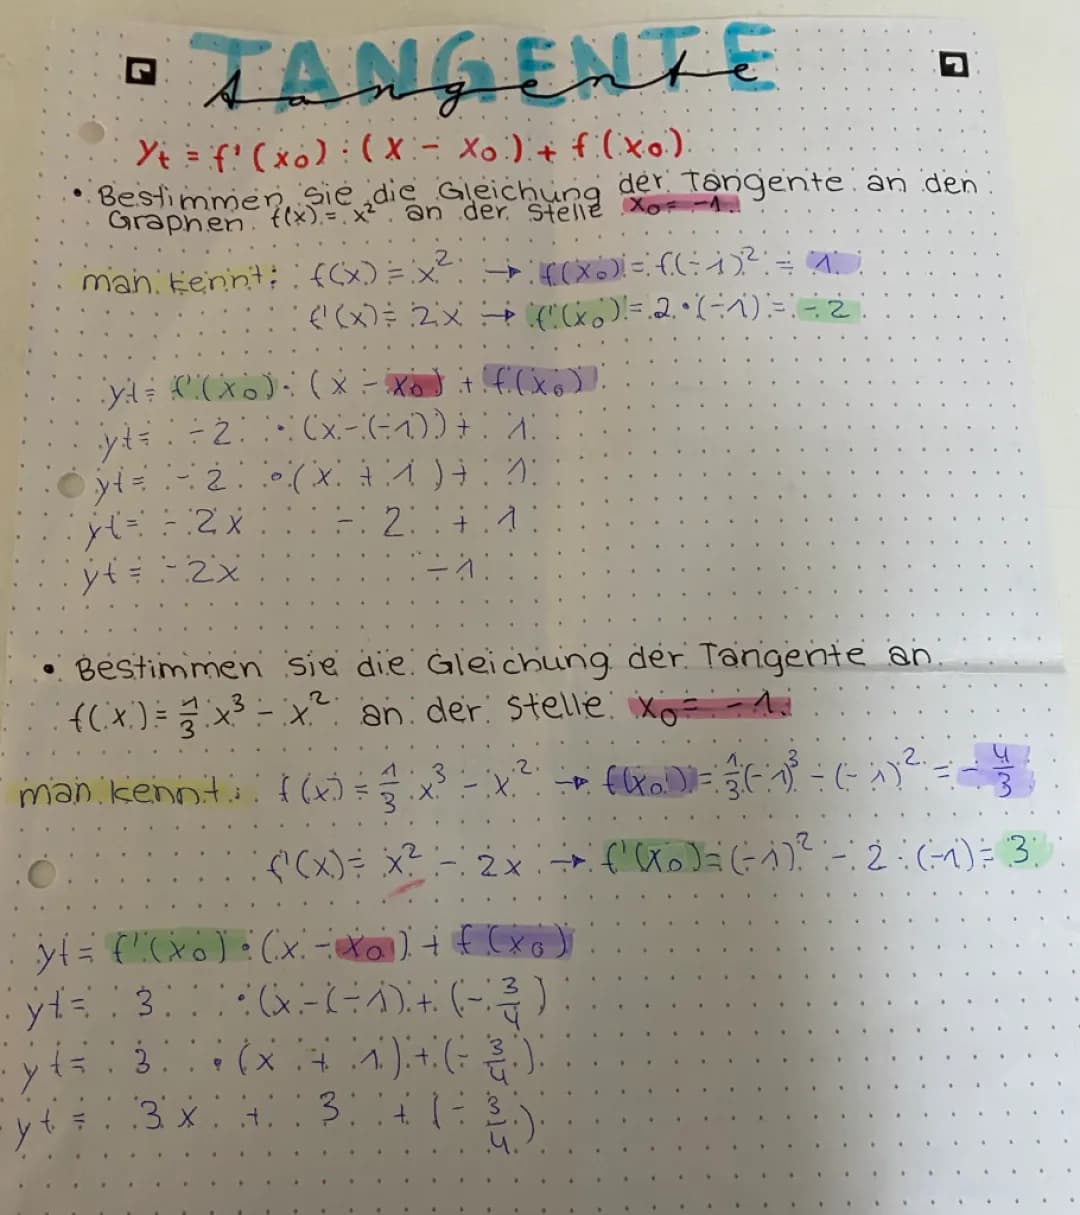 TANGENTE
tangente
yt = f'(x₀) · (x - x₀) + f(x₀)
• Bestimmen Sie die Gleichung der Tangente an den
Graphen f(x) = x² an der Stelle x₀ = -1.
man kennt: f(x) = x² → f(x₀) = f(-1)² = 1
f'(x) = 2x → f'(x₀) = 2 · (-1) = -2
yt = f'(x₀) · (x - x₀) + f(x₀)
yt = -2 · (x-(-1)) + 1
yt = -2 · (x + 1) + 1
yt = -2x - 2 + 1
yt = -2x -1
• Bestimmen sie die Gleichung der Tangente an
f(x) = 1/3 x³ - x² an der Stelle x₀ = -1.
man kennt: f(x) = 1/3 x³ - x² → f(x₀) = 1/3(-1)³ - (-1)² = -4/3
f'(x) = x² - 2x → f'(x₀) = (-1)² - 2 · (-1) = 3
yt = f'(x₀) · (x - x₀) + f(x₀)
yt = 3 · (x-(-1) + (-3/4)
yt = 3 · (x + 1) + (-3/4)
yt = 3x + 3 + (-3/4)